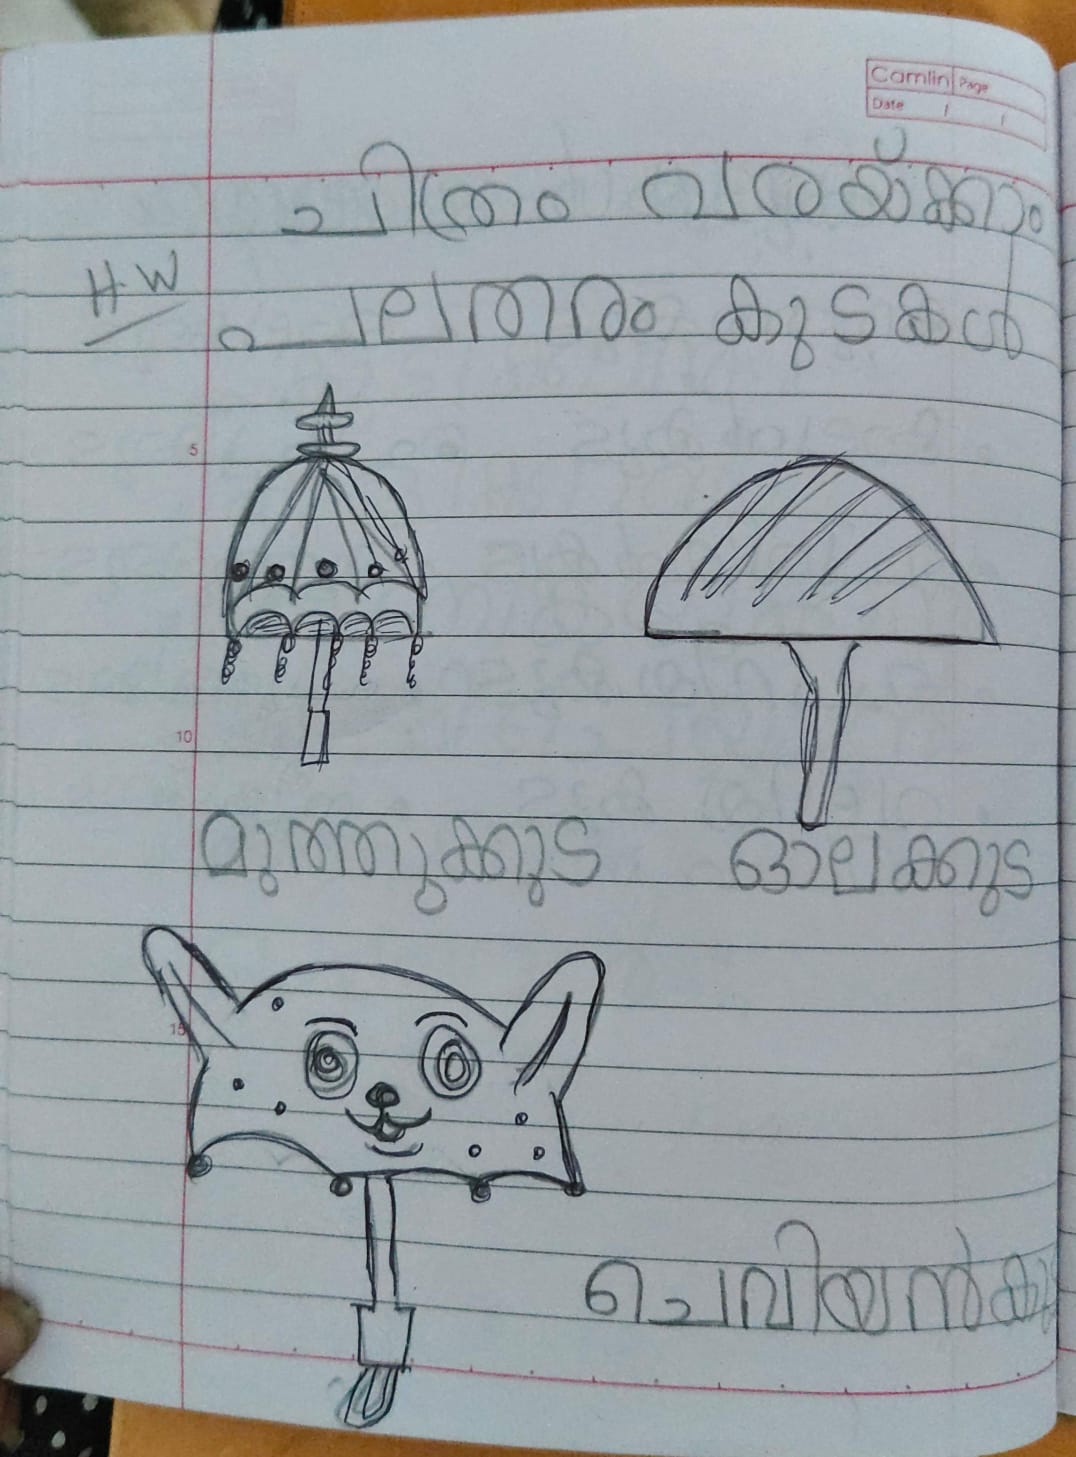 Camlin Page
Date / /
ചിത്രം വരയ്ക്കാം
H.W
പലതരം കുടകൾ
5
10
മുത്തുക്കുട ഓലക്കുട
15
ചെവിയൻകു